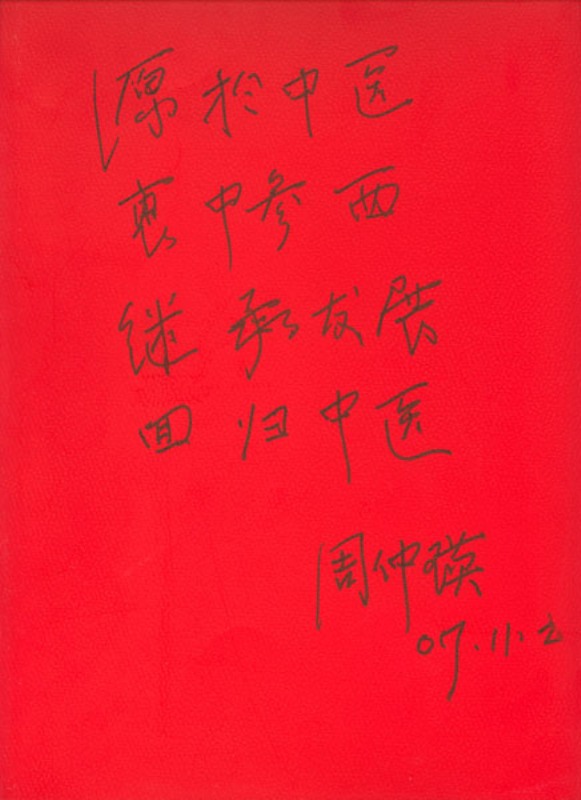 源於中医
衷中参西
继承发展
回归中医
周仲瑛
07.11.2